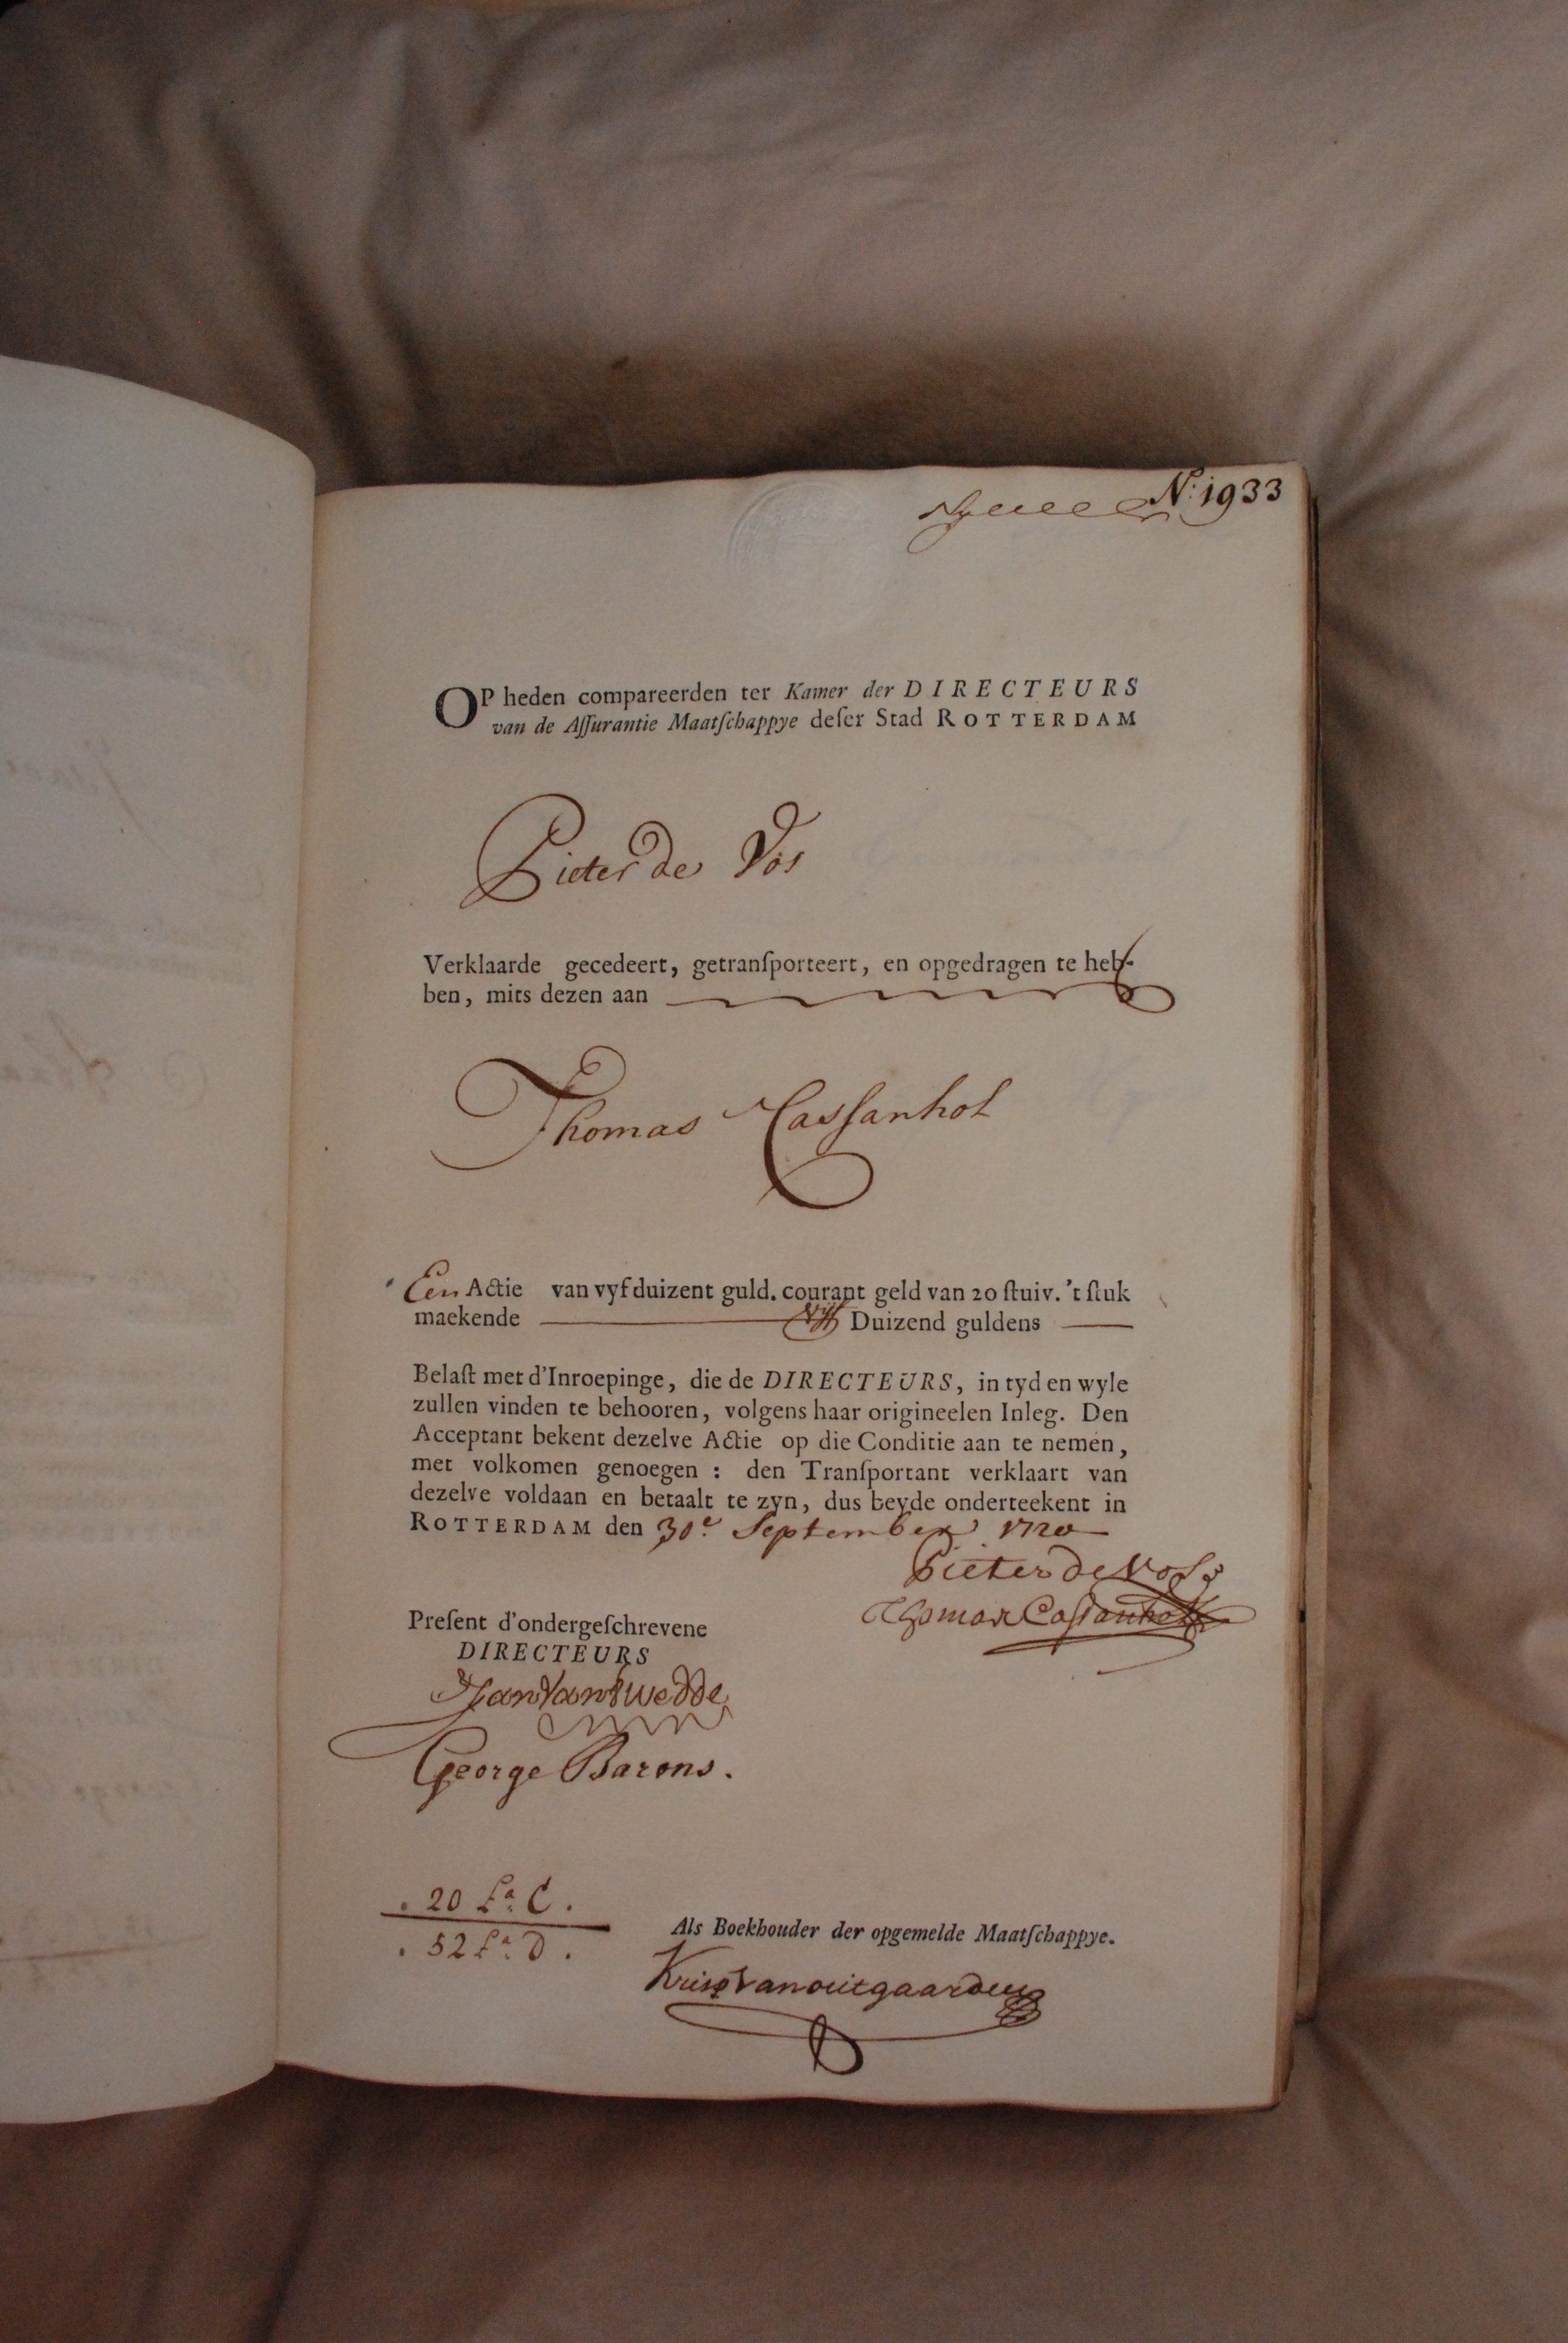 N.o 1933
OP heden compareerden ter Kamer der DIRECTEURS
van de Aſſurantie Maatſchappye deſer Stad ROTTERDAM
Pieter de Vos
Verklaarde gecedeert, getranſporteert, en opgedragen te heb-
ben, mits dezen aan
Thomas Caſſanhol
Een Actie van vyf duizent guld. courant geld van 20 ſtuiv. 't ſtuk
maekende vijf Duizend guldens
Belaſt met d'Inroepinge, die de DIRECTEURS, in tyd en wyle
zullen vinden te behooren, volgens haar origineelen Inleg. Den
Acceptant bekent dezelve Actie op die Conditie aan te nemen,
met volkomen genoegen : den Tranſportant verklaart van
dezelve voldaan en betaalt te zyn, dus beyde onderteekent in
ROTTERDAM den 30e September 1720
Pieter de Vos
Thomas Caſſanhol
Preſent d'ondergeſchrevene
DIRECTEURS
Jan Van Twedde
George Barons.
20 La C.
52 La D.
Als Boekhouder der opgemelde Maatſchappye.